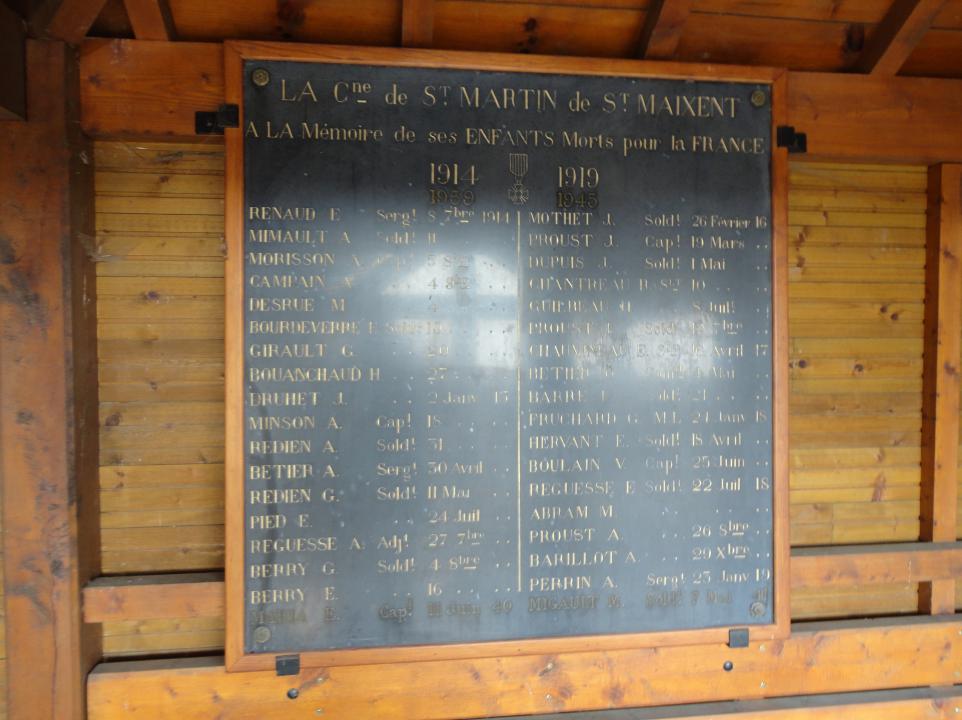 LA Cne de ST MARTIN de ST MAIXENT
A LA Mémoire de ses ENFANTS Morts pour la FRANCE
1914 1919
1939 1945
RENAUD E Sergt 8 7bre 1914
MIMAULT A Soldt 11
MORISSON 5 8bre ..
CAMPAIN 4 ..
DESRUE M 4
BOURDEVERRE
GIRAULT G. .. 20
BOUANCHAUD H .. 27 ..
DRUHET J. .. 2 Janv 15
MINSON A. Capl 18 ..
REDIEN A. Soldt 31 ..
BETIER A. Sergt 30 Avril ..
REDIEN G. Soldt 11 Mai ..
PIED E. .. 24 Juil ..
REGUESSE A. Adjt 27 7bre ..
BERRY G. Soldt 4 8bre ..
BERRY E. .. 16 .. ..
E. Capl 40
MOTHET J. Soldt 26 Février 16
PROUST J. Capl 19 Mars ..
DUPUIS J. Soldt 1 Mai ..
CHANTREAU 10 ..
GUILBEAU 8 Juil ..
PROUST 7bre ..
Avril 17
BETIER Mai ..
BARRE Soldt 21 ..
FRUCHARD G. M.L 24 Janv 18
HERVANT E. Soldt 18 Avril ..
BOULAIN V. Capl 25 Juin ..
REGUESSE E Soldt 22 Juil 18
ABRAM M. .. ..
PROUST A. .. 26 8bre ..
BARILLOT A .. 29 Xbre ..
PERRIN A. Sergt 23 Janv 19
MIGAULT Soldt